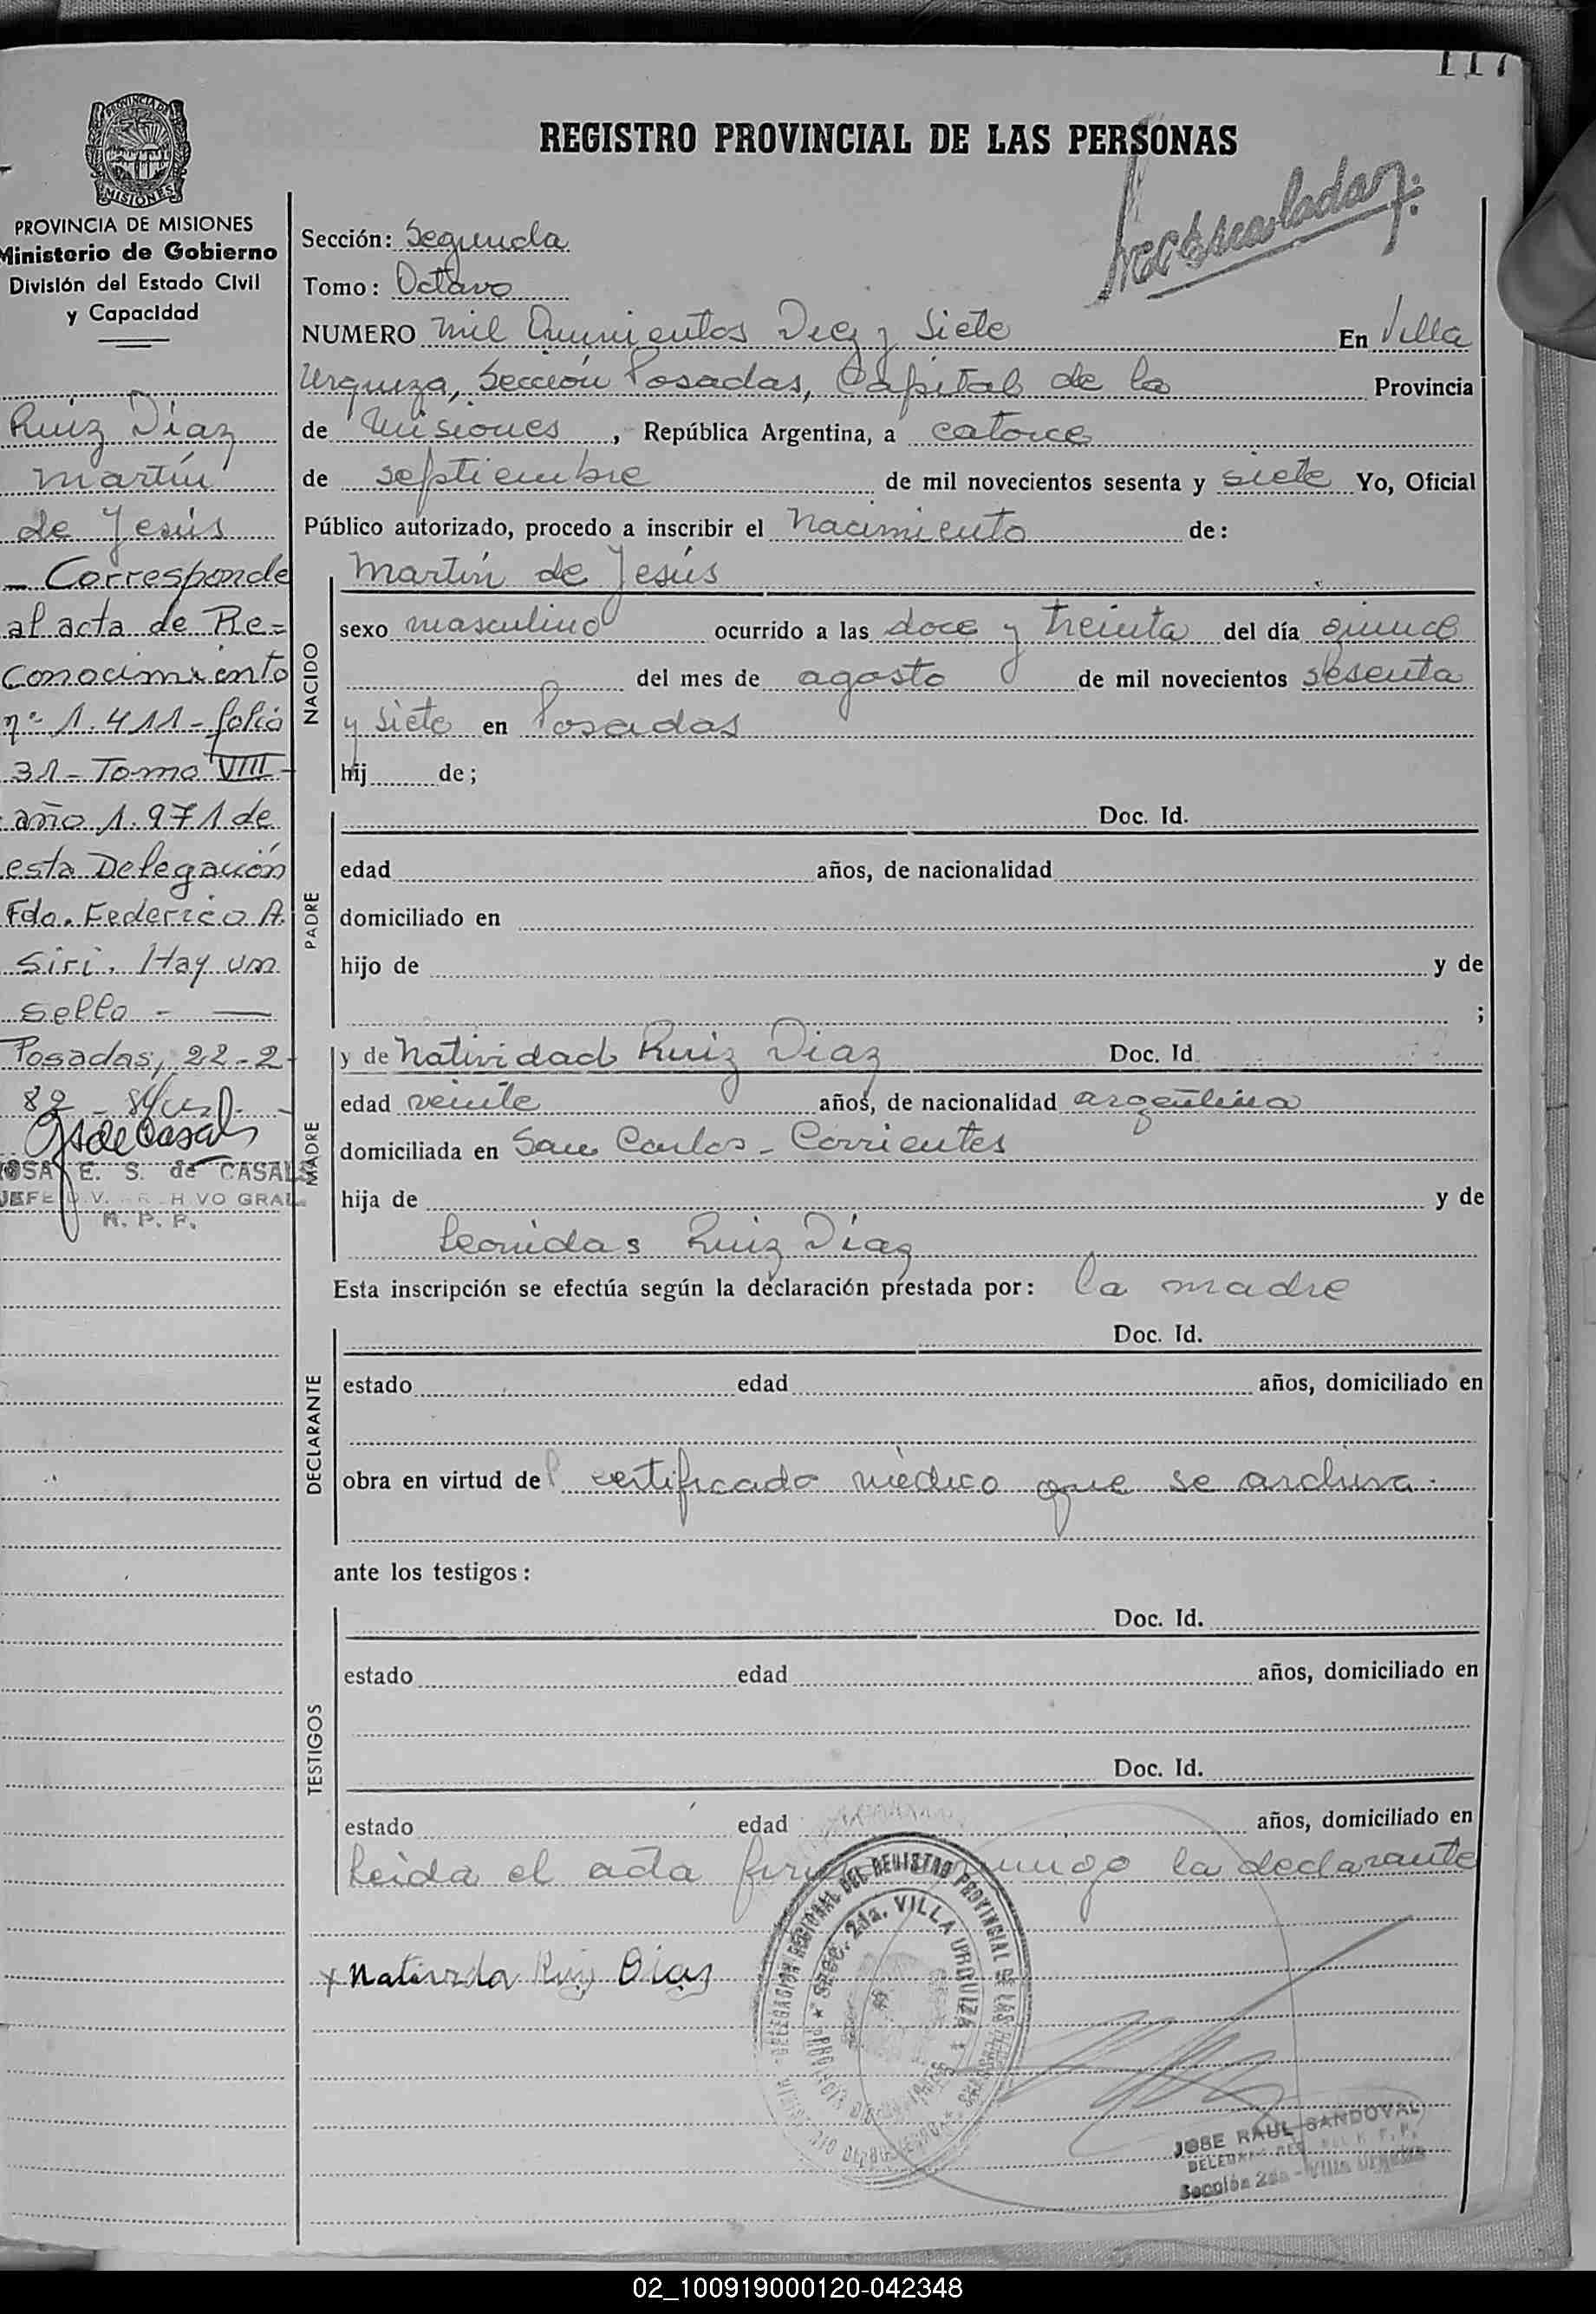 117
PROVINCIA DE MISIONES
REGISTRO PROVINCIAL DE LAS PERSONAS
PROVINCIA DE MISIONES
Ministerio de Gobierno
División del Estado Civil
y Capacidad
Ruiz Diaz
Martín
de Jesús
- Corresponde
al acta de Re=
conocimiento
nº 1.411 - folio
31 - Tomo VIII -
año 1.971 de
esta Delegación
Fdo. Federico A.
Siri. Hay un
sello - —
Posadas, 22-2-
82 -
ROSA E. S. de CASALS
JEFE
R. P. P.
Sección: Segunda
Tomo: Octavo
NUMERO mil Quinientos Diez y Siete En Villa
Urquiza, Sección Posadas, Capital de la Provincia
de Misiones, República Argentina, a catorce
de septiembre de mil novecientos sesenta y siete Yo, Oficial
Público autorizado, procedo a inscribir el Nacimiento de:
NACIDO
Martín de Jesús
sexo masculino ocurrido a las doce y treinta del día quince
del mes de agosto de mil novecientos sesenta
y siete en Posadas
hij de;
PADRE
Doc. Id.
edad años, de nacionalidad
domiciliado en
hijo de y de
;
MADRE
y de Natividad Ruiz Diaz Doc. Id
edad veinte años, de nacionalidad argentina
domiciliada en San Carlos - Corrientes
hija de y de
Leonidas Ruiz Díaz
Esta inscripción se efectúa según la declaración prestada por: la madre
DECLARANTE
Doc. Id.
estado edad años, domiciliado en
obra en virtud del certificado médico que se archiva.
ante los testigos:
TESTIGOS
Doc. Id.
estado edad años, domiciliado en
Doc. Id.
estado edad años, domiciliado en
Leida el acta la declarante
x Natividad Ruiz Diaz
DELEGACION REGIONAL DEL REGISTRO PROVINCIAL DE LAS
SECC. 2da. VILLA URQUIZA
JOSE RAUL SANDOVAL
Sección 2da - Villa Urquiza
02_100919000120-042348